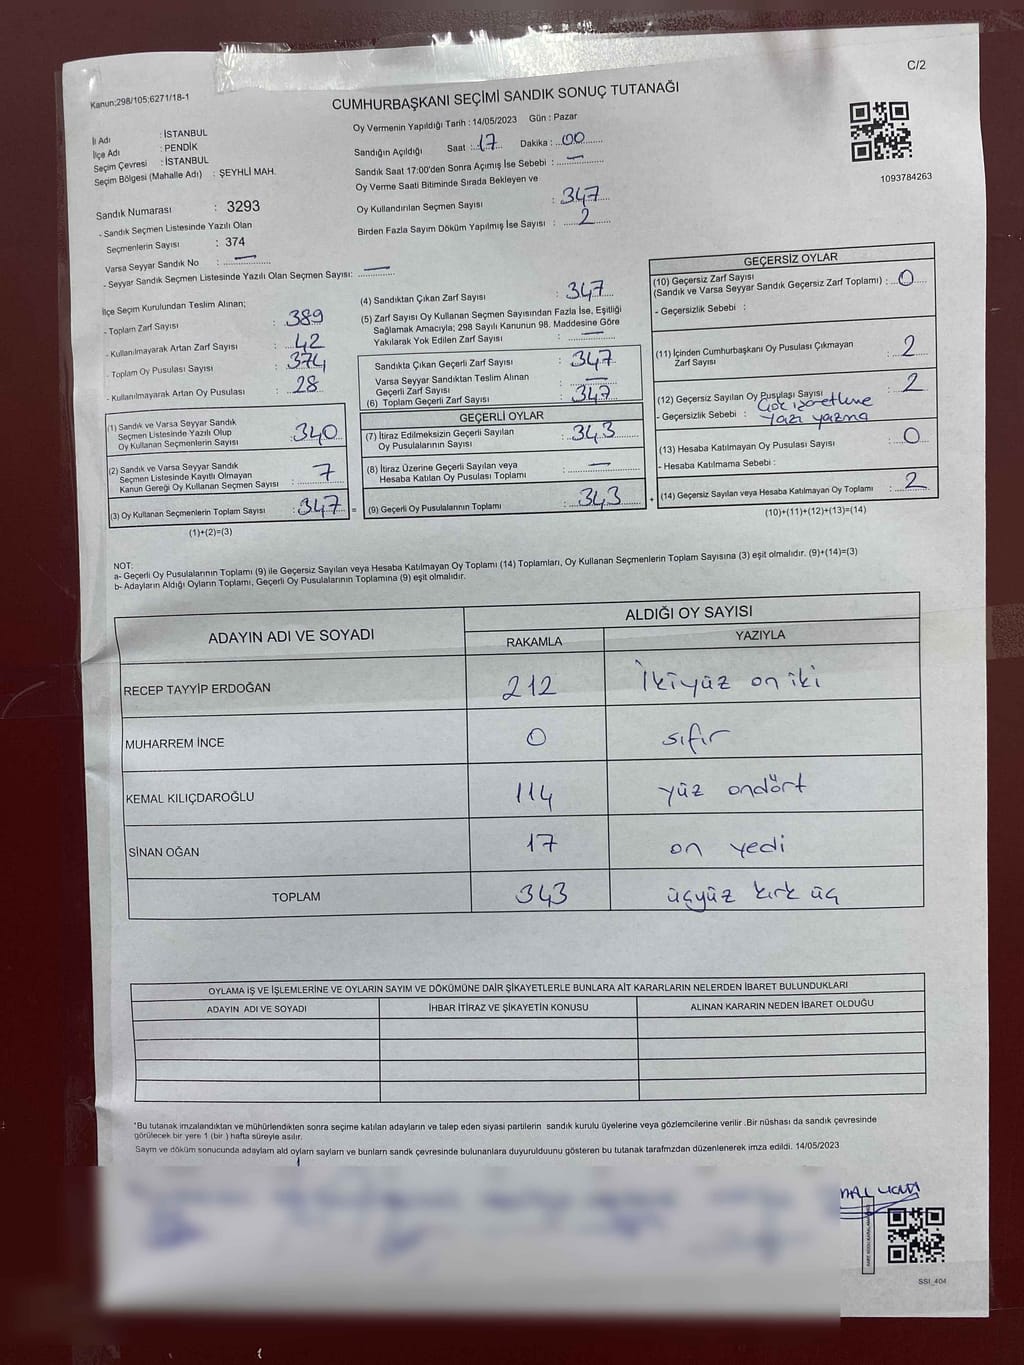 C/2
Kanun:298/105;6271/18-1
CUMHURBAŞKANI SEÇİMİ SANDIK SONUÇ TUTANAĞI
İl Adı : İSTANBUL
İlçe Adı : PENDİK
Seçim Çevresi : İSTANBUL
Seçim Bölgesi (Mahalle Adı) : ŞEYHLİ MAH.
Sandık Numarası : 3293
- Sandık Seçmen Listesinde Yazılı Olan
Seçmenlerin Sayısı : 374
Varsa Seyyar Sandık No : —
- Seyyar Sandık Seçmen Listesinde Yazılı Olan Seçmen Sayısı: —
Oy Vermenin Yapıldığı Tarih : 14/05/2023 Gün : Pazar
Sandığın Açıldığı Saat : 17 Dakika : 00
Sandık Saat 17:00'den Sonra Açımış İse Sebebi : —
Oy Verme Saati Bitiminde Sırada Bekleyen ve
Oy Kullandırılan Seçmen Sayısı : 347
Birden Fazla Sayım Döküm Yapılmış İse Sayısı : 2
1093784263
İlçe Seçim Kurulundan Teslim Alınan;
- Toplam Zarf Sayısı : 389
- Kullanılmayarak Artan Zarf Sayısı : 42
- Toplam Oy Pusulası Sayısı : 374
- Kullanılmayarak Artan Oy Pusulası : 28
(1) Sandık ve Varsa Seyyar Sandık
Seçmen Listesinde Yazılı Olup
Oy Kullanan Seçmenlerin Sayısı : 340
(2) Sandık ve Varsa Seyyar Sandık
Seçmen Listesinde Kayıtlı Olmayan
Kanun Gereği Oy Kullanan Seçmen Sayısı : 7
(3) Oy Kullanan Seçmenlerin Toplam Sayısı : 347 =
(1)+(2)=(3)
(4) Sandıktan Çıkan Zarf Sayısı : 347
(5) Zarf Sayısı Oy Kullanan Seçmen Sayısından Fazla İse, Eşitliği
Sağlamak Amacıyla; 298 Sayılı Kanunun 98. Maddesine Göre
Yakılarak Yok Edilen Zarf Sayısı : —
Sandıkta Çıkan Geçerli Zarf Sayısı : 347
Varsa Seyyar Sandıktan Teslim Alınan
Geçerli Zarf Sayısı : —
(6) Toplam Geçerli Zarf Sayısı : 347
GEÇERLİ OYLAR
(7) İtiraz Edilmeksizin Geçerli Sayılan
Oy Pusulalarının Sayısı : 343
(8) İtiraz Üzerine Geçerli Sayılan veya
Hesaba Katılan Oy Pusulası Toplamı : —
(9) Geçerli Oy Pusulalarının Toplamı : 343 +
GEÇERSİZ OYLAR
(10) Geçersiz Zarf Sayısı
(Sandık ve Varsa Seyyar Sandık Geçersiz Zarf Toplamı) : 0
- Geçersizlik Sebebi :
(11) İçinden Cumhurbaşkanı Oy Pusulası Çıkmayan
Zarf Sayısı : 2
(12) Geçersiz Sayılan Oy Pusulası Sayısı : 2
- Geçersizlik Sebebi : Çok işaretleme
Yazı yazma
(13) Hesaba Katılmayan Oy Pusulası Sayısı : 0
- Hesaba Katılmama Sebebi :
(14) Geçersiz Sayılan veya Hesaba Katılmayan Oy Toplamı : 2
(10)+(11)+(12)+(13)=(14)
NOT:
a- Geçerli Oy Pusulalarının Toplamı (9) ile Geçersiz Sayılan veya Hesaba Katılmayan Oy Toplamı (14) Toplamları, Oy Kullanan Seçmenlerin Toplam Sayısına (3) eşit olmalıdır. (9)+(14)=(3)
b- Adayların Aldığı Oyların Toplamı, Geçerli Oy Pusulalarının Toplamına (9) eşit olmalıdır.
ADAYIN ADI VE SOYADI ALDIĞI OY SAYISI
RAKAMLA YAZIYLA
RECEP TAYYİP ERDOĞAN 212 İkiyüz on iki
MUHARREM İNCE 0 sıfır
KEMAL KILIÇDAROĞLU 114 yüz ondört
SİNAN OĞAN 17 on yedi
TOPLAM 343 üçyüz kırk üç
OYLAMA İŞ VE İŞLEMLERİNE VE OYLARIN SAYIM VE DÖKÜMÜNE DAİR ŞİKAYETLERLE BUNLARA AİT KARARLARIN NELERDEN İBARET BULUNDUKLARI
ADAYIN ADI VE SOYADI İHBAR İTİRAZ VE ŞİKAYETİN KONUSU ALINAN KARARIN NEDEN İBARET OLDUĞU
*Bu tutanak imzalandıktan ve mühürlendikten sonra seçime katılan adayların ve talep eden siyasi partilerin sandık kurulu üyelerine veya gözlemcilerine verilir .Bir nüshası da sandık çevresinde
görülecek bir yere 1 (bir ) hafta süreyle asılır.
Sayım ve döküm sonucunda adaylam ald oylam saylam ve bunlarn sandk çevresinde bulunanlara duyurulduunu gösteren bu tutanak tarafmzdan düzenlenerek imza edildi. 14/05/2023
SSI_404